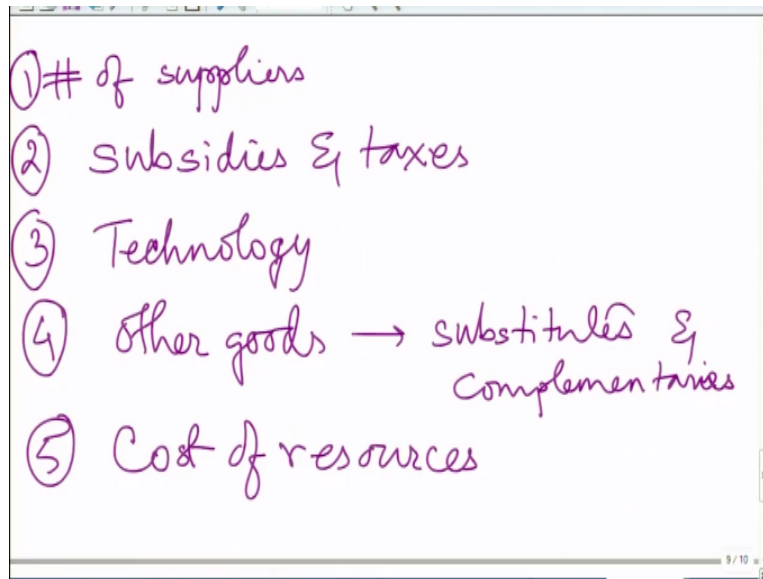 ① # of suppliers
② subsidies & taxes
③ Technology
④ other goods → substitutes &
complementaries
⑤ Cost of resources
9/10